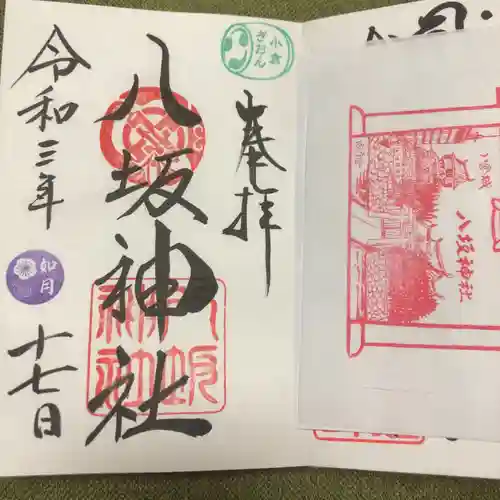 奉拝
小倉
ぎおん
八坂神社
八坂
神社
令和三年
如月
十七日
八坂神社